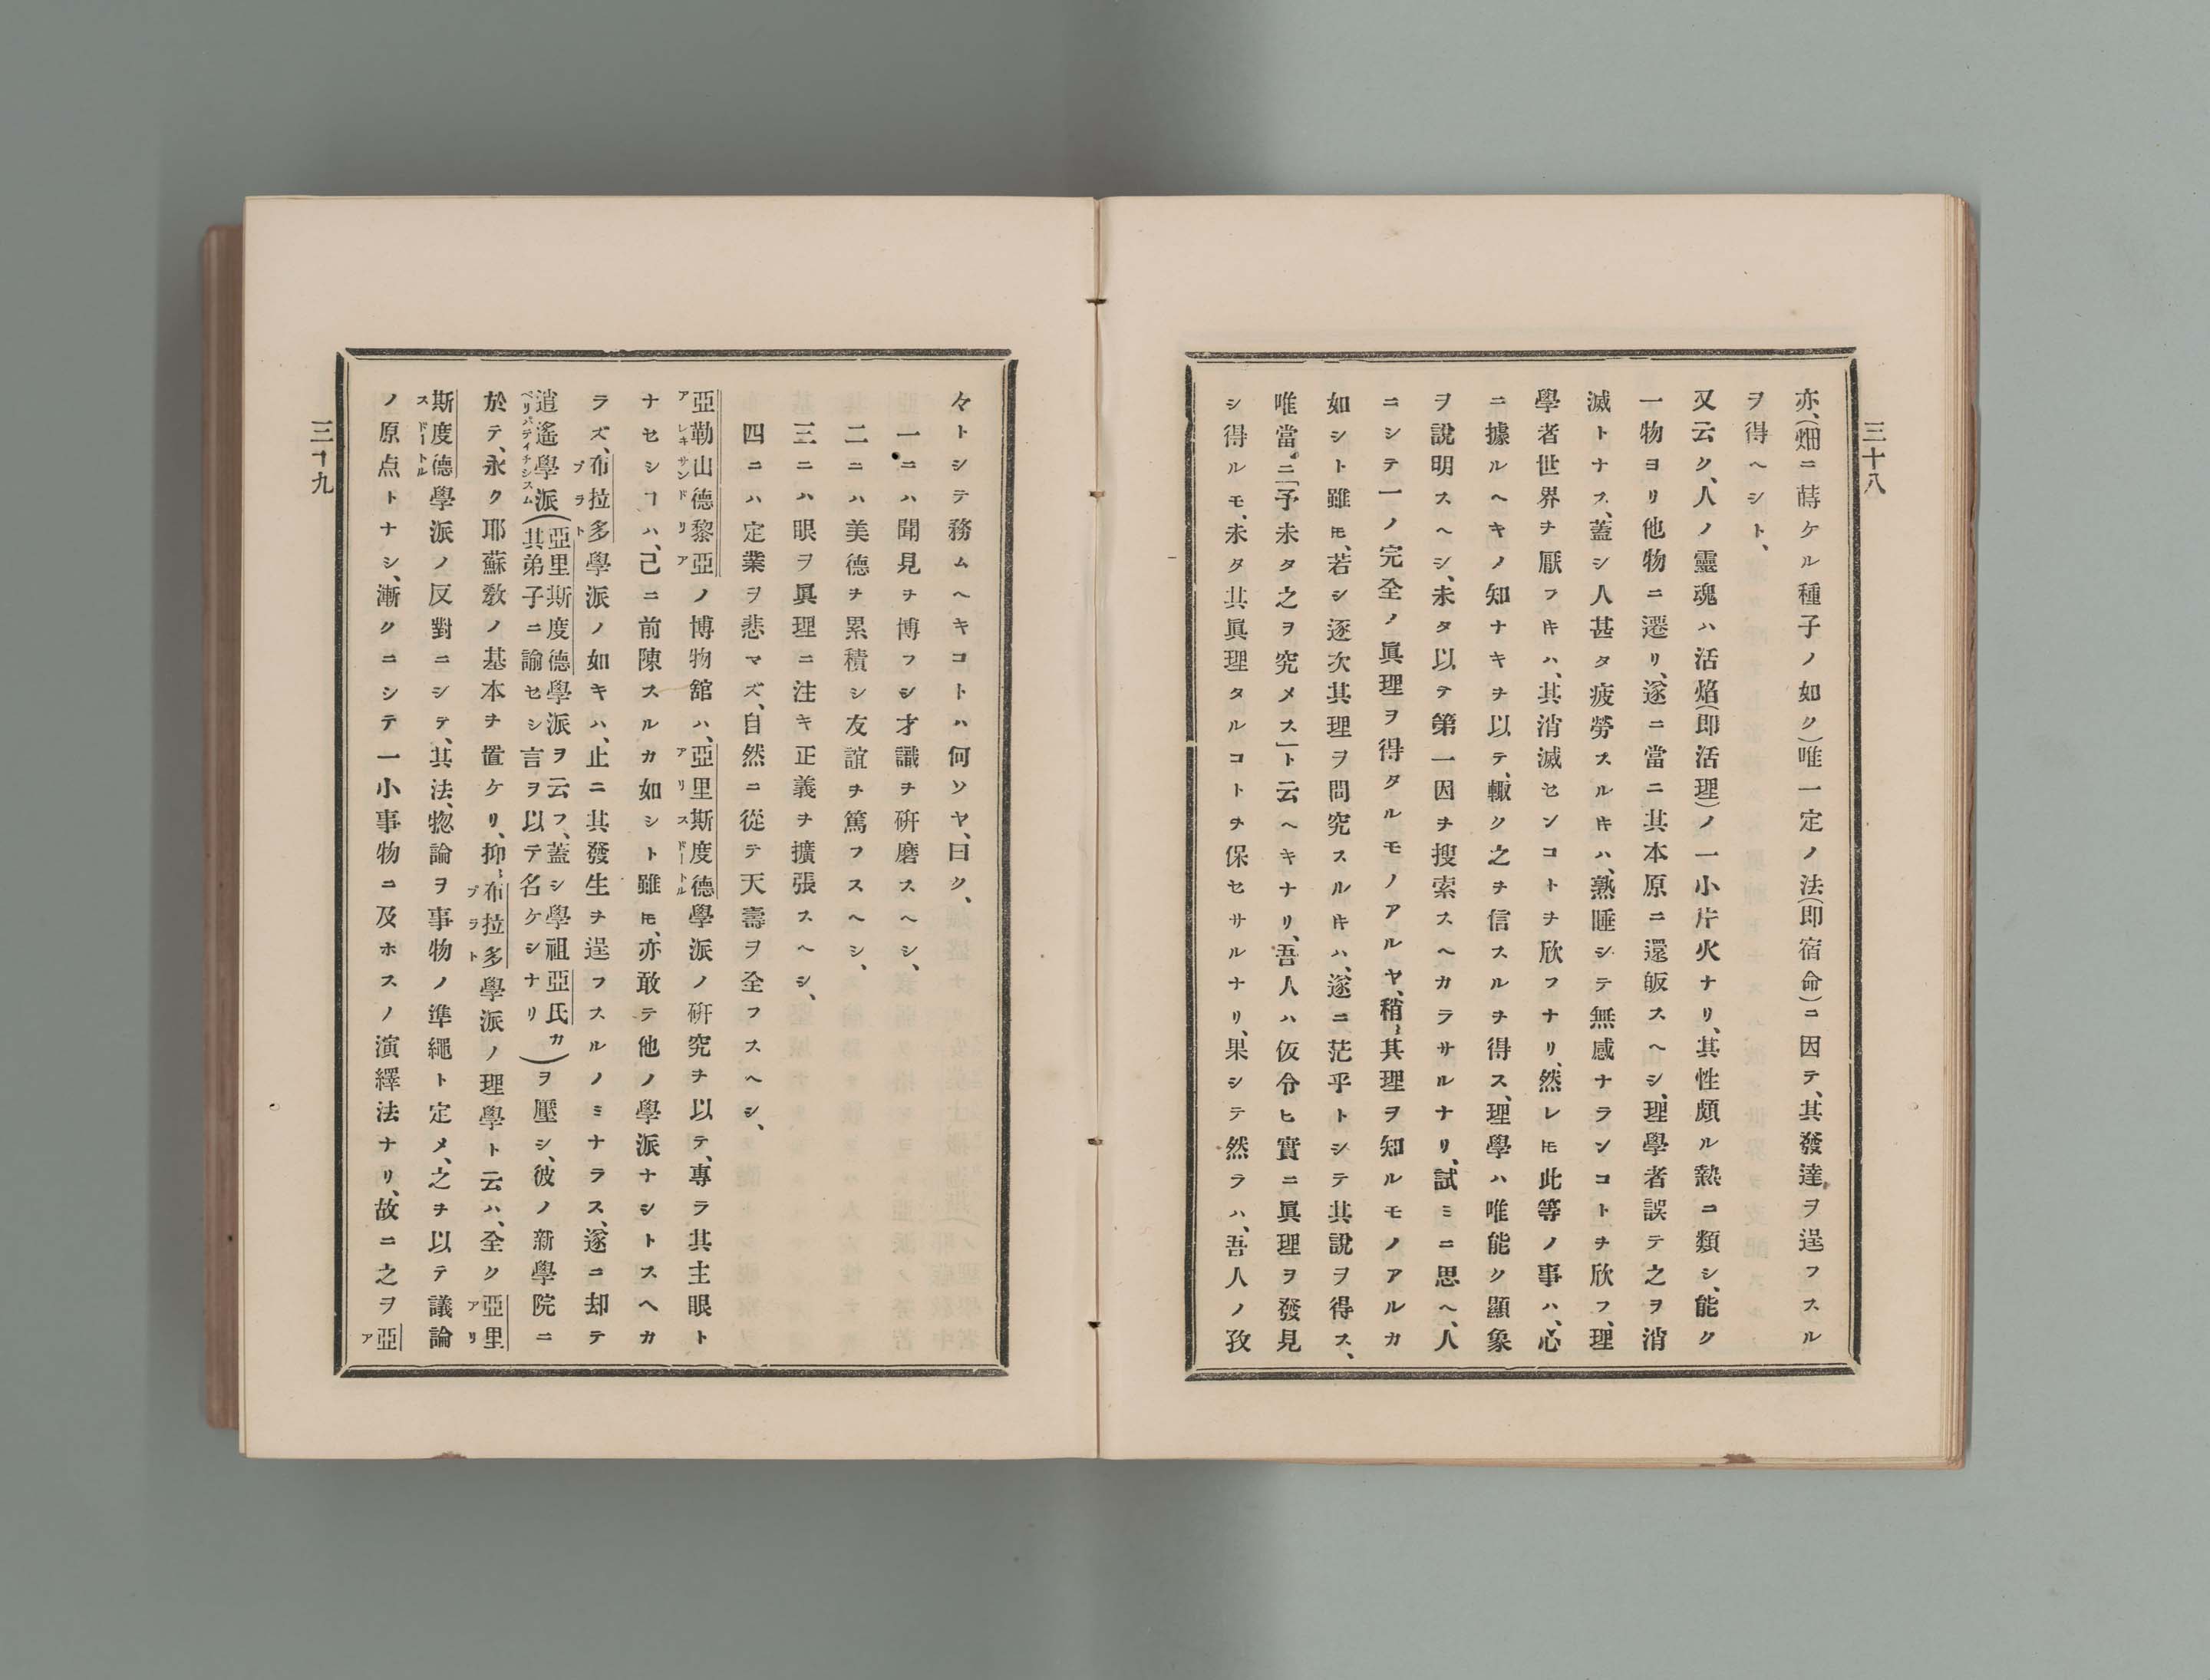 三十八
亦、(畑ニ蒔ケル種子ノ如ク)唯一定ノ法(即宿命)ニ因テ、其發達ヲ逞フスル
ヲ得ヘシト、
又云ク、人ノ靈魂ハ活焰(即活理)ノ一小片火ナリ、其性頗ル熱ニ類シ、能ク
一物ヨリ他物ニ遷リ、遂ニ當ニ其本原ニ還皈スヘシ、理學者誤テ之ヲ消
滅トナス、蓋シ人甚タ疲勞スルキハ、熟睡シテ無感ナランコトヲ欣フ、理
學者世界ヲ厭フキハ、其消滅センコトヲ欣フナリ、然レ𪜈此等ノ事ハ、心
ニ據ルヘキノ知ナキヲ以テ、輙ク之ヲ信スルヲ得ス、理學ハ唯能ク顯象
ヲ說明スヘシ、未タ以テ第一因ヲ搜索スヘカラサルナリ、試ミニ思ヘ、人
ニシテ一ノ完全ノ眞理ヲ得タルモノアルヤ、稍〻其理ヲ知ルモノアルカ
如シト雖𪜈、若シ逐次其理ヲ問究スルキハ、遂ニ茫乎トシテ其說ヲ得ス、
唯當ニ「予未タ之ヲ究メス」ト云ヘキナリ、吾人ハ仮令ヒ實ニ眞理ヲ發見
シ得ルモ、未タ其眞理タルコトヲ保セサルナリ、果シテ然ラハ、吾人ノ孜
三十九
々トシテ務ムヘキコトハ何ソヤ、曰ク、
一ニハ聞見ヲ博フシ才識ヲ硏磨スヘシ、
二ニハ美德ヲ累積シ友誼ヲ篤フスヘシ、
三ニハ眼ヲ眞理ニ注キ正義ヲ擴張スヘシ、
四ニハ定業ヲ悲マズ、自然ニ從テ天壽ヲ全フスヘシ、
亞勒山德黎亞ノ博物舘ハ、亞里斯度德學派ノ硏究ヲ以テ、專ラ其主眼ト
アレキサンドリア
アリスドートル
ナセシヿハ、己ニ前陳スルカ如シト雖𪜈、亦敢テ他ノ學派ナシトスヘカ
ラズ、布拉多學派ノ如キハ、止ニ其發生ヲ逞フスルノミナラス、遂ニ却テ
プラト
逍遙學派(亞里斯度德學派ヲ云フ、蓋シ學祖亞氏カ
其弟子ニ諭セシ言ヲ以テ名ケシナリ)ヲ壓シ、彼ノ新學院ニ
ペリパテイチシスム
於テ、永ク耶蘇敎ノ基本ヲ置ケリ、抑〻布拉多學派ノ理學ト云ハ、全ク亞里
プラト
アリ
斯度德學派ノ反對ニシテ、其法、惣論ヲ事物ノ準繩ト定メ、之ヲ以テ議論
スドートル
ノ原点トナシ、漸クニシテ一小事物ニ及ホスノ演繹法ナリ、故ニ之ヲ亞
ア